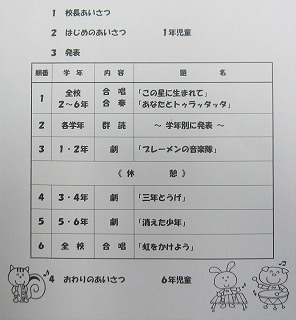 1 校長あいさつ
2 はじめのあいさつ 1年児童
3 発表
順番 学年 内容 題名
1 全校 合唱 「この星に生まれて」
2~6年 合奏 「あなたとトゥラッタッタ」
2 各学年 群読 ~ 学年別に発表 ~
3 1・2年 劇 「ブレーメンの音楽隊」
《休憩》
4 3・4年 劇 「三年とうげ」
5 5・6年 劇 「消えた少年」
6 全校 合唱 「虹をかけよう」
4 おわりのあいさつ 6年児童